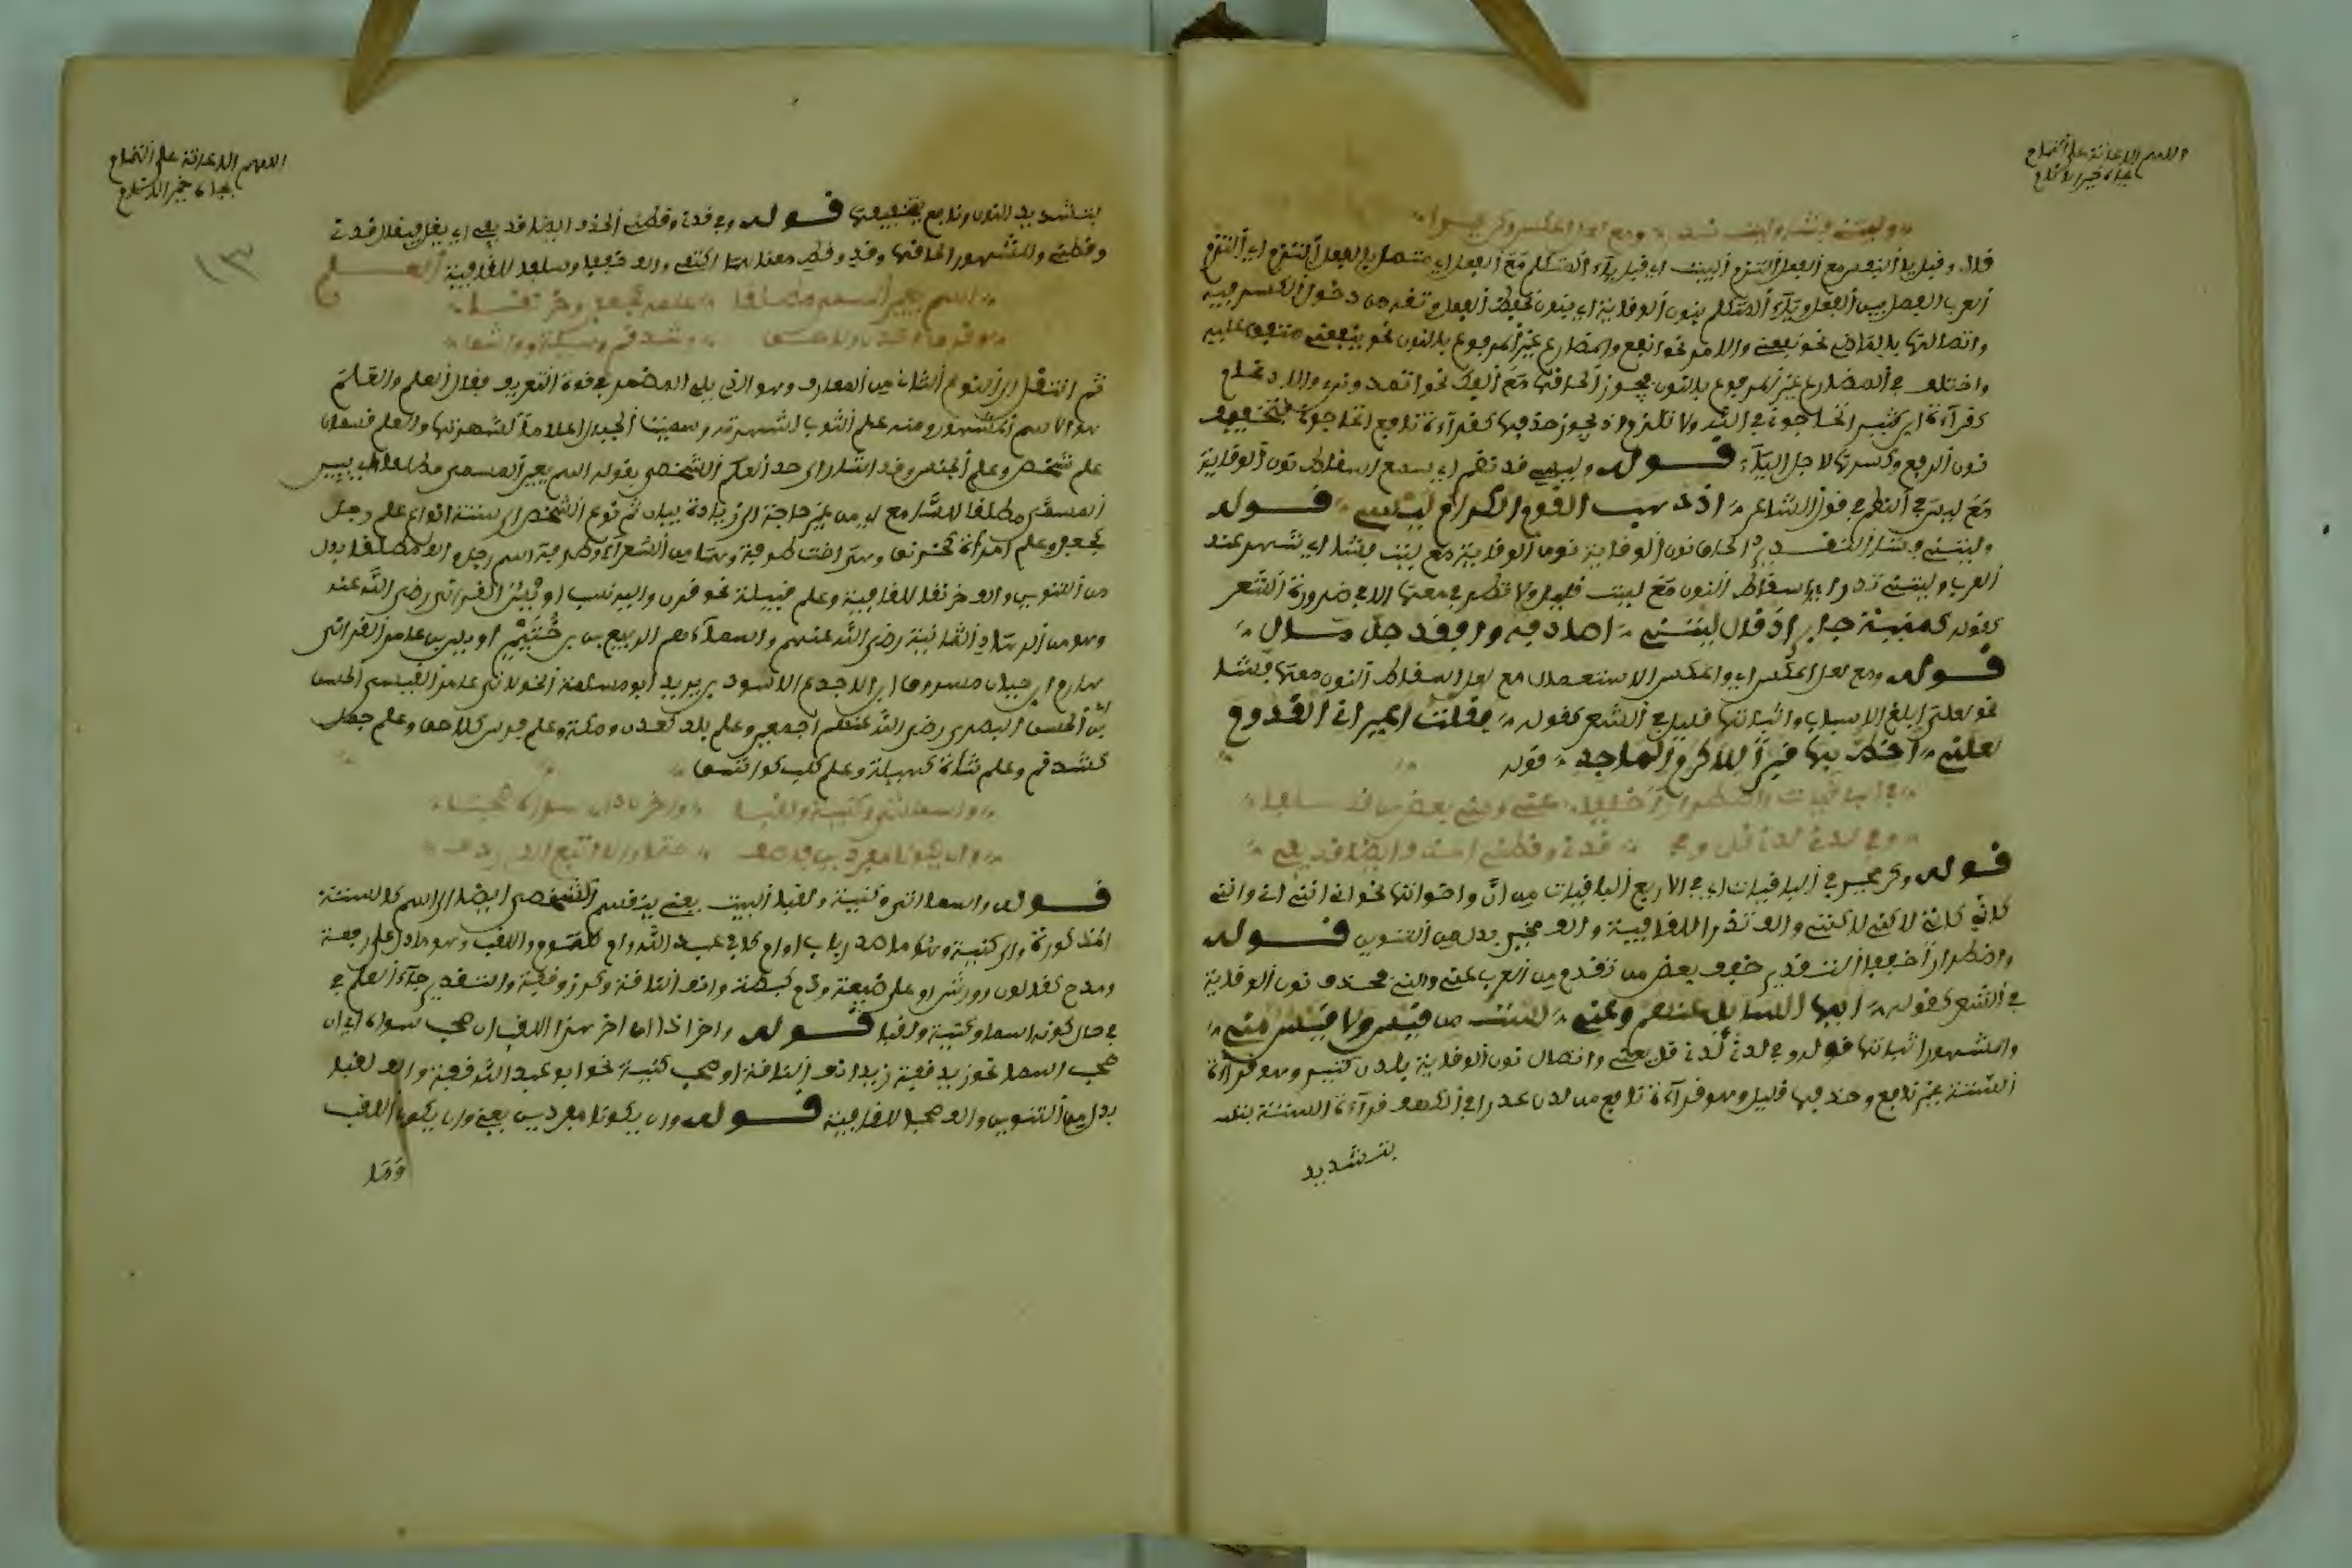 اللهم الاعانة على التمام
بجاه خير الانام
وليتني فشا وليتي ندرا ومع لعل اعكس وكن مخيرا
قال وقبل يا النفس مع الفعل التزم البيت اي قبل ياء المتكلم مع الفعل اي متصلا بالفعل التزم اي التزم
العرب الفصل بين الفعل وياء المتكلم بنون الوقاية اي بنون تحفظ الفعل وتقيه من دخول الكسر فيه
واتصالها بالماضي نحو نفعني والامر نحو انفعني والمضارع غير المرفوع بالنون نحو ينفعني متفق عليه
واختلف في المضارع غير المرفوع بالنون يجوز الحاقها مع الفك نحو اتمدونني والادغام
كقراءة ابن كثير اتحاجوني في الله ولا تلزم اذ يجوز حذفها كقراءة نافع اتحاجوني بتخفيف
نون الرفع وكسرها لاجل الياء قوله وليسي قد نظم اي سمع اسقاط نون الوقاية
مع ليس في النظم في قول الشاعر اذ ذهب القوم الكرام ليسي قوله
وليتني فشا التقدير الحاق نون الوقاية مع ليت فشا اي شهر عند
العرب وليتي ندرا اي اسقاط النون مع ليت قليل ولا تطرح معها الا في ضرورة الشعر
كقوله كمنية جابر اذ قال ليتي اصادفه وافقد جل مال
قوله ومع لعل اعكس اي واعكس الاستعمال مع لعل اسقاط النون معها فشا
نحو لعلي ابلغ الاسباب واثباتها قليل في الشعر كقوله فقلت اعيراني القدوم
لعلني اخط بها قبرا لاكرم الماجد قوله
في الباقيات واضطرارا خففا عني ومني بعض من قد سلفا
وفي لدني لدني قل وفي قدني وقطني الحذف ايضا قد يفي
قوله وكن مخيرا في الباقيات اي في الاربع الباقيات من ان واخواتها نحو اني انني اني وانني
كاني كانني لكني لكنني والف ندرا للقافية والف مخيرا بدل من التنوين قوله
واضطرارا خففا التقدير خفف بعض من تقدم من العرب عني ومني بحذف نون الوقاية
في الشعر كقوله ايها السايل عنهم وعني لست من قيس ولا قيس مني
والمشهور اثباتها قوله وفي لدني لدني قل يعني واتصال نون الوقاية بلدن كثير وهو قراءة
الستة غير نافع وحذفها قليل وهو قراءة نافع من لدني عذرا في الكهف قراءة الستة
بتشديد
اللهم الاعانة على التمام
بجاه خير الانام
١٣
بتشديد النون ونافع بتخفيفها قوله وفي قدني وقطني الحذف ايضا قد يفي اي يقل فيقال قدي
وقطي والمشهور الحاقها وقد وقط معناهما اكتفى والف خففا وسلفا للقافية العلم
اسم يعين المسمى مطلقا علمه كجعفر وخرنقا
وقرن وعدن ولاحق وشذقم وهيلة وواشق
ثم انتقل الى النوع الثاني من المعارف وهو الذي يلي المضمر في قوة التعريف فقال العلم والعلم
هو الاسم المشهور ومنه علم الثوب لشهرته وسميت الجبال اعلاما لشهرتها والعلم قسمان
علم شخص وعلم الجنس وقد اشار الى حد العلم الشخصي بقوله اسم يعين المسمى مطلقا اي يبين
المسمى مطلقا للسامع اي من غير حاجة الى زيادة بيان ثم نوع الشخص الى ستة انواع علم رجل
كجعفر وعلم امراة كخرنق وهي اخت طرفة وهما من الشعراء وطرفة اسم رجل والف مطلقا بدل
من التنوين والف خرنقا للقافية وعلم قبيلة نحو قرن واليه نسب اويس القرني رضي الله عنه
وهو من الزهاد الثمانية رضي الله عنهم واسماءهم الربيع بن خثيم اويس بن عامر القرني
هارم ابن حيان مسروق ابن الاجدع الاسود بن يزيد ابو مسلمة الخولاني عامر القيسي الحسن
بن الحسن البصري رضي الله عنهم اجمعين وعلم بلد كعدن ومكة وعلم فرس كلاحق وعلم جمل
كشدقم وعلم شاة كهيلة وعلم كلب كواشق
واسما اتى وكنية ولقبا واخرن ذا ان سواه صحبا
وان يكونا مفردين فاضف حتما والا اتبع الذي ردف
قوله واسما اتى وكنية ولقبا البيت يعني ينقسم الشخصي ايضا الى اسم كالستة
المذكورة والى كنية وهو ما صدر باب او ام كابي عبد الله وام كلثوم واللقب وهو ما دل على رفعة
ومدح كقالون وورش او على ضيعة وذم كبطة وانف الناقة وكرز وقفة والتقدير جاء العلم في
في حال كونه اسما وكنية ولقبا قوله واخرن ذا اي اخر هذا اللقب ان صحب سواه اي ان
صحب اسما نحو زيد قفة زيد انف الناقة او صحب كنية نحو ابو عبد الله قفة والف لقبا
بدل من التنوين والف صحبا للقافية قوله وان يكونا مفردين يعني وان يكون اللقب
وما